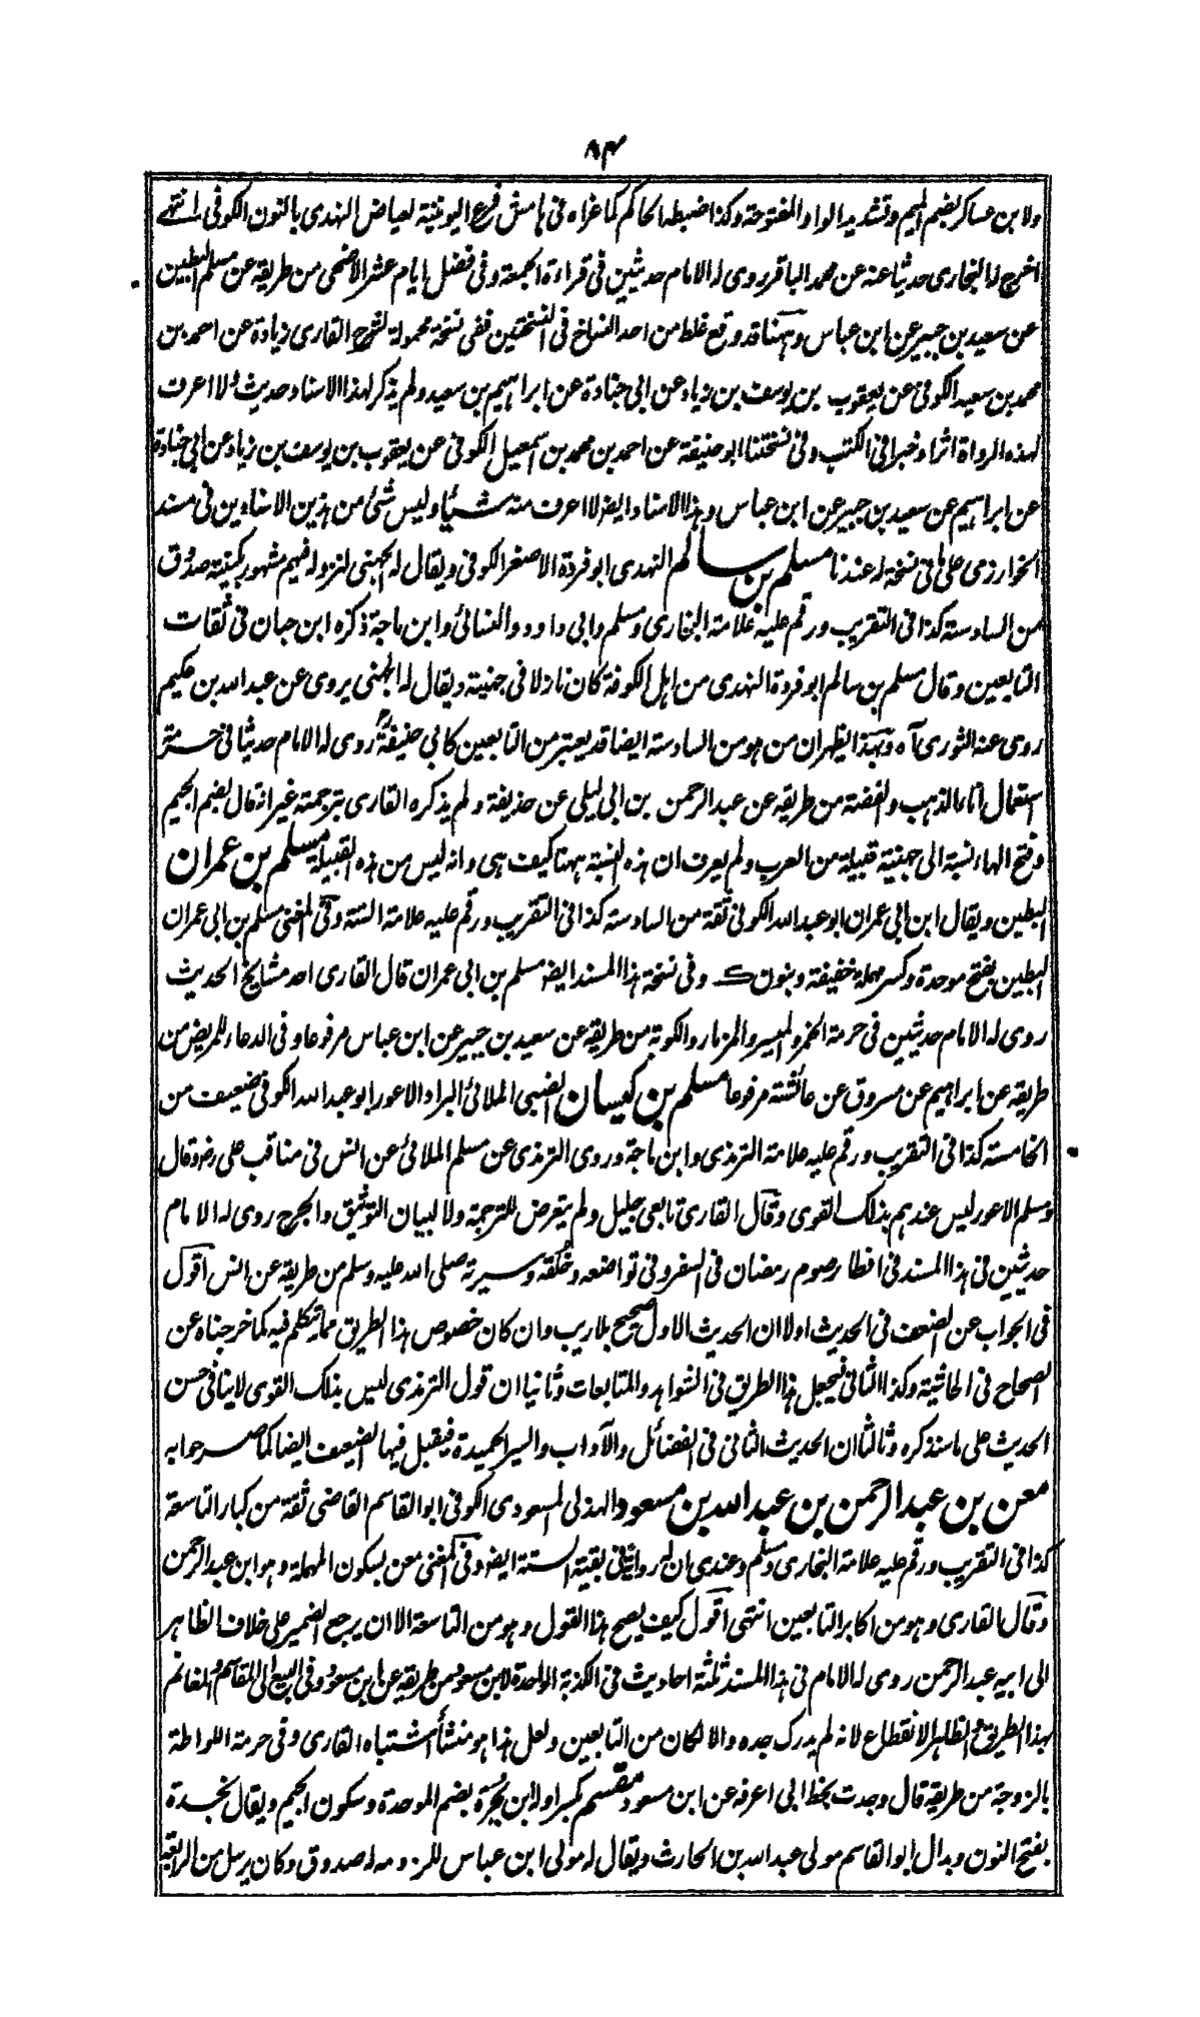 ٨٤
ولابن عساكر بضم الميم وتشديد الواو المفتوحة وكذا ضبطه الحاكم كما عزاه فى هامش فرع اليونينية لعياض النهدى بالنون الكوفى انتهى
اخرج له البخارى حديثا عنه عن محمد الباقر روى له الامام حديثين فى قراءة الجمعة وفى فضل ايام عشر الاضحى من طريقه عن مسلم البطين
عن سعيد بن جبير عن ابن عباس وههنا قد وقع غلط من احد النساخ فى النسختين ففى نسخة محمولة لشرح القارى زيادة عن احمد بن
محمد بن سعيد الكوفى عن يعقوب بن يوسف بن زياد عن ابى جنادة عن ابراهيم بن سعيد ولم يذكر لهذا الاسناد حديث ولا اعرف
لهذه الرواة اثرا وخبرا فى الكتب وفى نسختنا ابو حنيفة عن احمد بن محمد بن اسمعيل الكوفى عن يعقوب بن يوسف بن زياد عن ابى جنادة
عن ابراهيم عن سعيد بن جبير عن ابن عباس وهذا الاسناد ايضا لا اعرف منه شيئا وليس شئ من هذين الاسنادين فى مسند
الخوارزمى على ما فى نسخة له عندنا مسلم بن سالم النهدى ابو فروة الاصغر الكوفى ويقال له الجهنى لنزوله فيهم مشهور بكنيته صدوق
من السادسة كذا فى التقريب ورقم عليه علامة البخارى ومسلم وابى داود والنسائى وابن ماجة ذكره ابن حبان فى ثقات
التابعين وقال مسلم بن سالم ابو فروة النهدى من اهل الكوفة كان نازلا فى جهنية ويقال له الجهنى يروى عن عبد الله بن عكيم
روى عنه الثورى آه وبهذا يظهر ان من هو من السادسة ايضا قد يعتبر من التابعين كابى حنيفة روى له الامام حديثا فى حرمة
استعمال اناء الذهب والفضة من طريقه عن عبد الرحمن بن ابى ليلى عن حذيفة ولم يذكره القارى بترجمته غير انه قال بضم الجيم
وفتح الهاء نسبة الى جهنية قبيلة من العرب ولم يعرف ان هذه النسبة ههنا كيف هى وانه ليس من هذه القبيلة مسلم بن عمران
البطين ويقال ابن ابى عمران ابو عبد الله الكوفى ثقة من السادسة كذا فى التقريب ورقم عليه علامة الستة وفى المغنى مسلم بن ابى عمران
البطين بفتح موحدة وكسر مهملة خفيفة وبنون ك وفى نسخة هذا المسند ايضا مسلم بن ابى عمران قال القارى احد مشايخ الحديث
روى له الامام حديثين فى حرمة الخمر والميسر والمزمار والكوبة من طريقه عن سعيد بن جبير عن ابن عباس مرفوعا وفى الدعاء للمريض من
طريقه عن ابراهيم عن مسروق عن عائشة مرفوعا مسلم بن كيسان الضبى الملائى البراد الاعور ابو عبد الله الكوفى ضعيف من
الخامسة كذا فى التقريب ورقم عليه علامة الترمذى وابن ماجة وروى الترمذى عن مسلم الملائى عن انس فى مناقب على رض وقال
ومسلم الاعور ليس عندهم بذلك القوى وقال القارى تابعى جليل ولم يتعرض للترجمة ولا لبيان التوثيق والجرح روى له الامام
حديثين فى هذا المسند فى افطار صوم رمضان فى السفر وفى تواضعه وخلقه وسيرته صلى الله عليه وسلم من طريقه عن انس اقول
فى الجواب عن الضعف فى الحديث اولا ان الحديث الاول صحيح بلا ريب وان كان خصوص هذا الطريق مما تكلم فيه كما خرجناه عن
الصحاح فى الحاشية وكذا الثانى فيجعل هذا الطريق فى الشواهد والمتابعات وثانيا ان قول الترمذى ليس بذلك القوى لا ينافى حسن
الحديث على ما سنذكره وثالثا ان الحديث الثانى فى الفضائل والآداب والسير الحميدة فيقبل فيها الضعيف ايضا كما صرحوا به
معن بن عبد الرحمن بن عبد الله بن مسعود الهذلى المسعودى الكوفى ابو القاسم القاضى ثقة من كبار التاسعة
كذا فى التقريب ورقم عليه علامة البخارى ومسلم وعندى ان له رواية فى بقية الستة ايضا وفى المغنى معن بسكون المهملة وهو ابن عبد الرحمن
وقال القارى وهو من اكابر التابعين انتهى اقول كيف يصح هذا القول وهو من التاسعة الا ان يرجع الضمير على خلاف الظاهر
الى ابيه عبد الرحمن روى له الامام فى هذا المسند ثلثة احاديث فى الكذبة الواحدة لابن مسعود من طريقه عن ابن مسعود وفى البيع الى المقاسم والمغانم
بهذا الطريق والظاهر الانقطاع لانه لم يدرك جده والا لكان من التابعين ولعل هذا هو منشأ اشتباه القارى وفى حرمة اللواطة
بالزوجة من طريقه قال وجدت بخط ابى اعرفه عن ابن مسعود مقسم بكسر اوله ابن بجرة بضم الموحدة وسكون الجيم ويقال نجدة
بفتح النون وبدال ابو القاسم مولى عبد الله بن الحارث ويقال له مولى ابن عباس للزومه له صدوق وكان يرسل من الرابعة